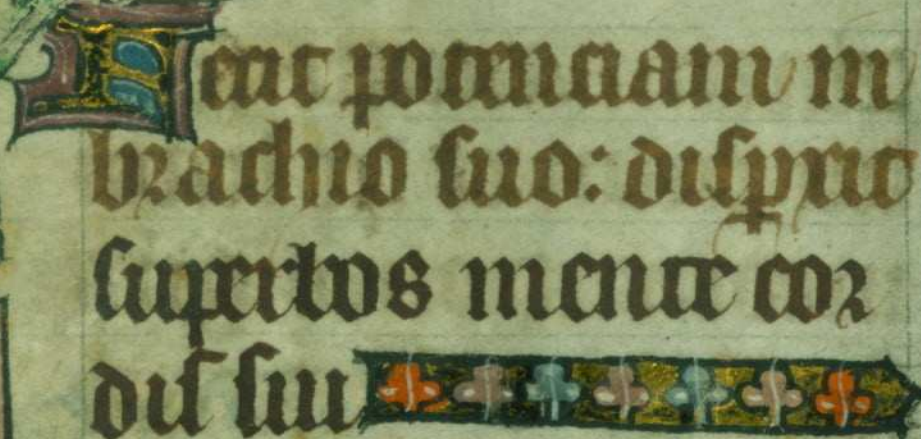 Fecit potenciam in
brachio suo: disꝑsit
superbos mente cor
dis sui